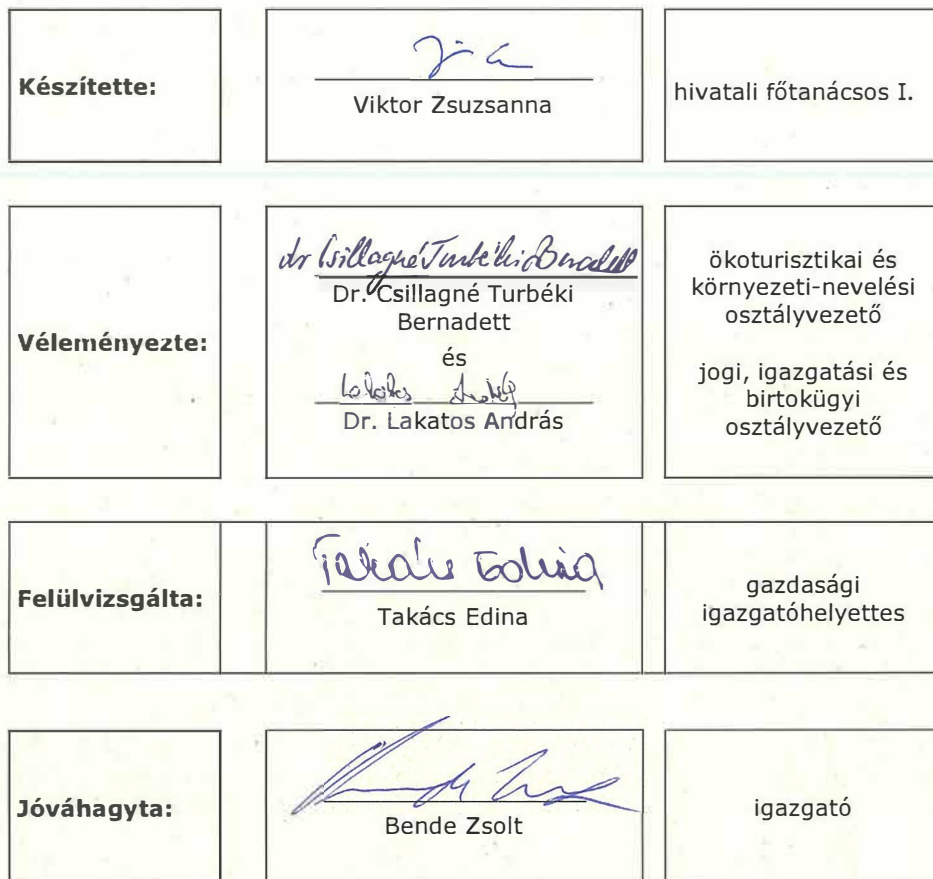 Készítette:
Viktor Zsuzsanna
hivatali főtanácsos I.
Véleményezte:
dr Csillagné Turbéki Bernadett
Dr. Csillagné Turbéki
Bernadett
és
Lakatos András
Dr. Lakatos András
ökoturisztikai és
környezeti-nevelési
osztályvezető
jogi, igazgatási és
birtokügyi
osztályvezető
Felülvizsgálta:
Takács Edina
Takács Edina
gazdasági
igazgatóhelyettes
Jóváhagyta:
Bende Zsolt
igazgató